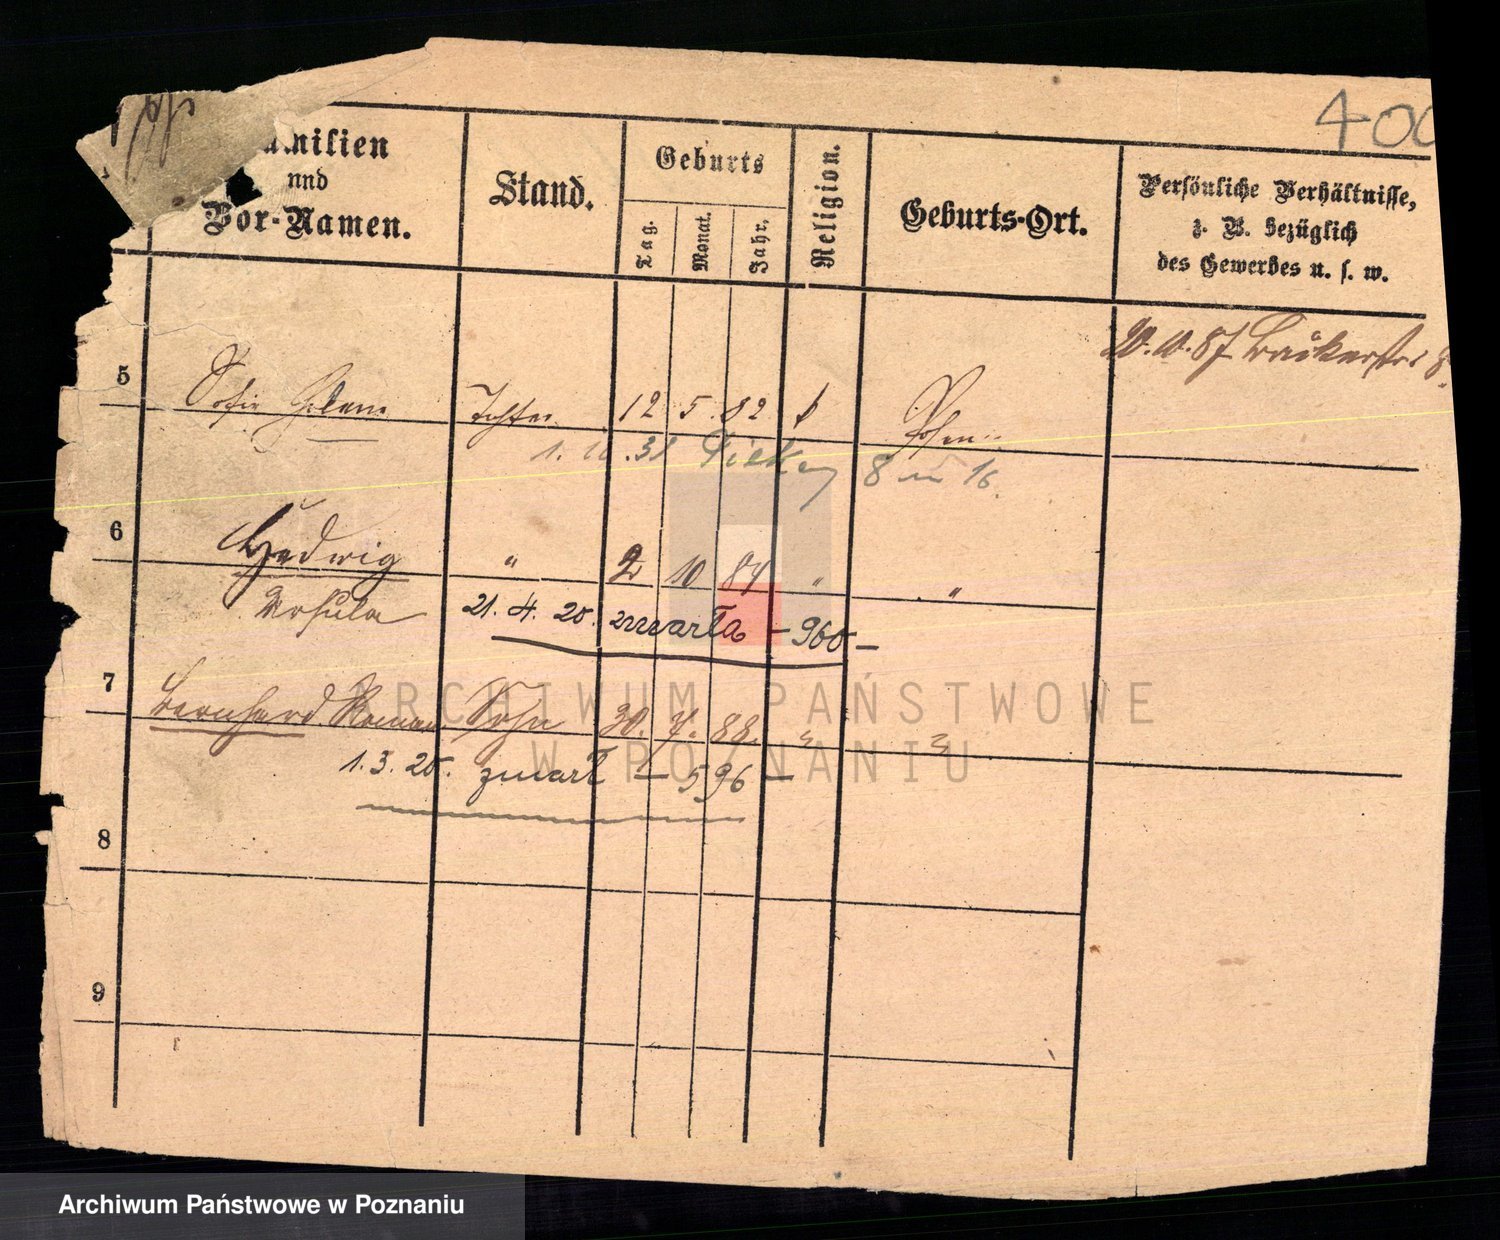 400
Familien
und
Vor-Namen.
Stand.
Geburts
Tag.
Monat.
Jahr.
Religion.
Geburts-Ort.
Persönliche Verhältnisse,
z. B. bezüglich
des Gewerbes u. s. w.
20.10.87 Bäckerstr. 8.
5 Sofie Helene Tochter 12 5. 82 k Posen
8 m 16.
6 Hedwig " 2 10 84 " "
Ursula 21. 4. 20. zwarta - 960 -
7 Bernhard Roman Sohn 30. 7. 88. " "
1. 3. 20. zwart - 596 -
8
9
ARCHIWUM PAŃSTWOWE
W POZNANIU
Archiwum Państwowe w Poznaniu